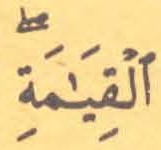 ٱلْقِيَٰمَةِۖ